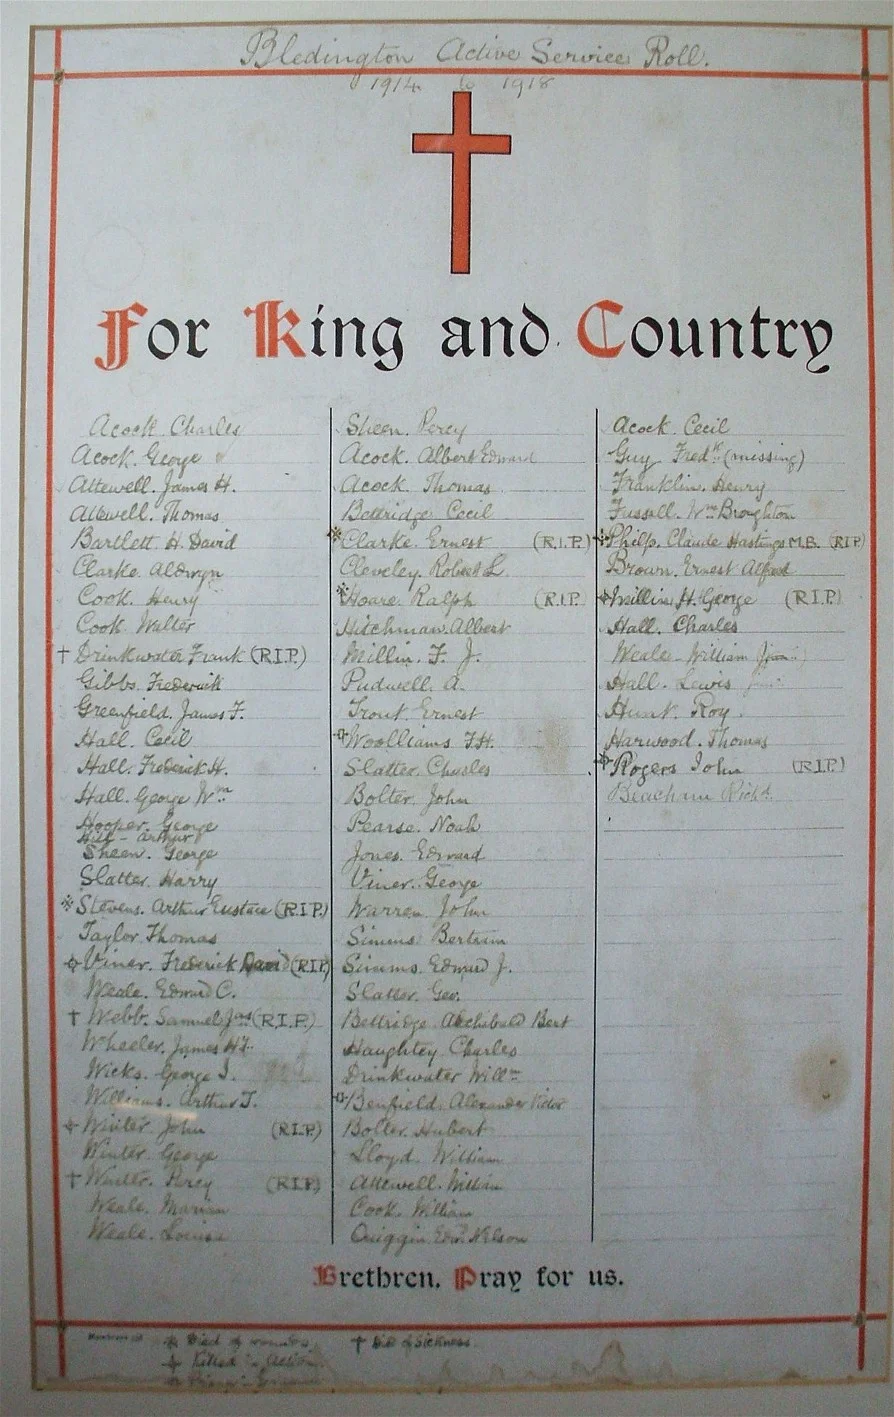 Bledington Active Service Roll.
1914 to 1918
For King and Country
Acock Charles
Acock. George
Attewell. James H.
Attewell. Thomas
Bartlett H. David
Clarke. Aldwyn
Cook. Henry
Cook Walter
† Drinkwater Frank (R.I.P.)
Gibbs Frederick
Greenfield. James F.
Hall. Cecil
Hall. Frederick H.
Hall. George Wm
Hooper. George
Hill - Arthur
Sheen. George
Slatter. Harry
※ Stevens. Arthur Eustace (R.I.P.)
Taylor Thomas
Viner. Frederick David (RIP)
Weale. Edward C.
† Webb. Samuel Jas (R.I.P.)
Wheeler. James
Wicks. George
Williams. Arthur T.
Winter John (R.I.P.)
Winter George
† Winter. Percy (R.I.P.)
Weale. Marian
Weale. Louisa
Sheen. Percy
Acock. Albert Edward
Acock. Thomas
Bettridge Cecil
※ Clarke. Ernest (R.I.P.)
Cleveley. Robert L.
※ Hoare. Ralph (R.I.P.
Hitchman. Albert
Millin. F. J.
Pudwell. A.
Trout. Ernest
Woolliams F.H.
Slatter. Charles
Bolter. John
Pearse. Noah
Jones. Edward
Viner. George
Warren John
Simms Bertram
Simms. Edward J.
Slatter. Geo.
Bettridge. Archibald Bert
Haughtey Charles
Drinkwater Willm
Benfield. Alexander Victor
Bolter. Hubert
Lloyd. William
Attewell. William
Cook. William
Quiggin. Edwd Nelson
Acock. Cecil
Guy Fredk (missing)
Franklin. Henry
Fussell. Wm Broughton
Philp. Claude Hastings M.B. (RIP)
Brown. Ernest Alfred
Millin. H. George (R.I.P)
Hall. Charles
Weale. William
Hall. Lewis
Hunt. Roy
Harwood. Thomas
Rogers John (R.I.P.)
Beacham Richd.
Brethren, Pray for us.
Died of wounds † Died of Sickness
Killed in Action